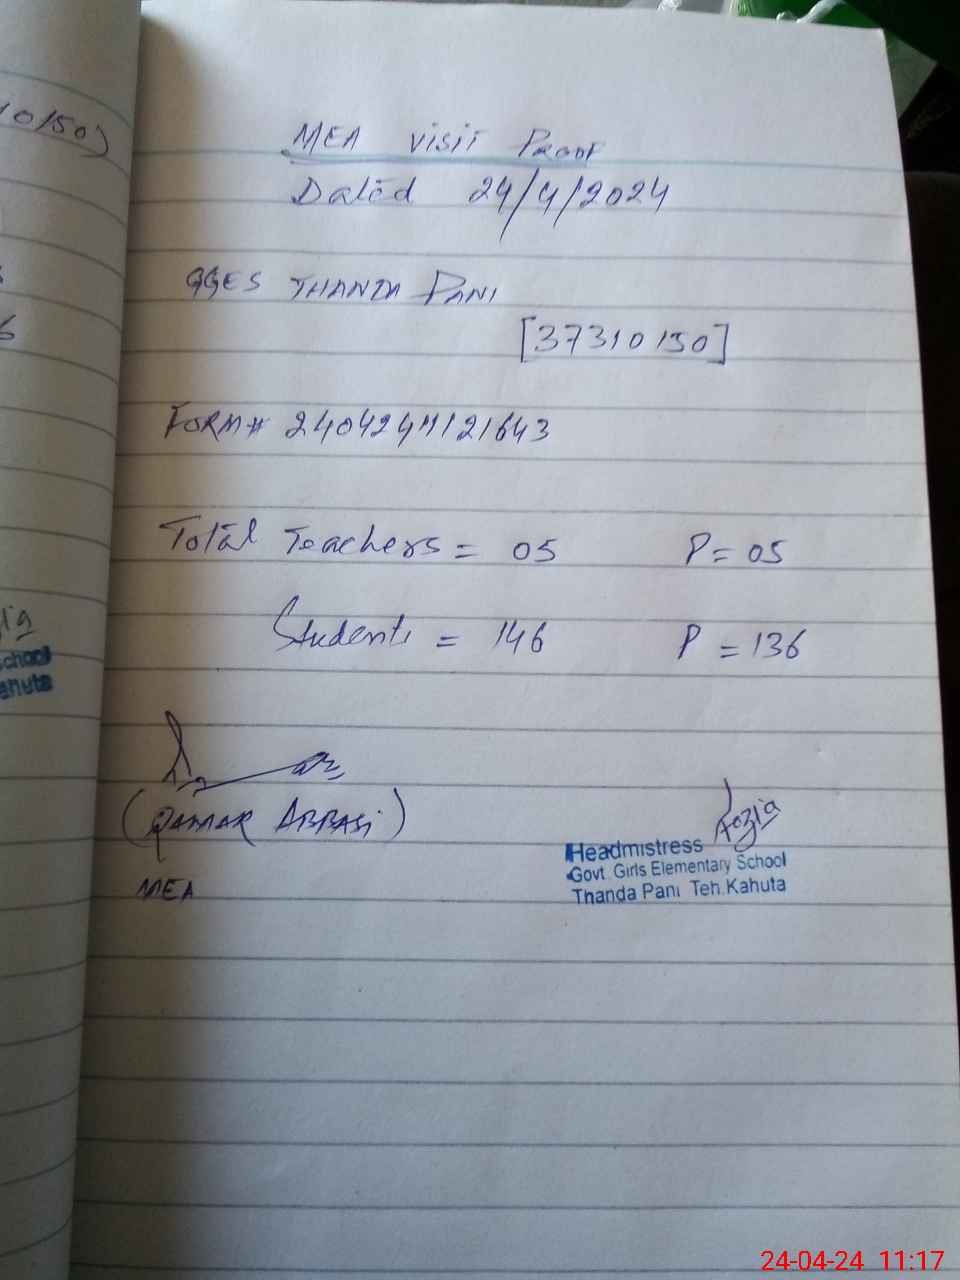 10150)
6
MEA VISIT PROOF
Dated 24/4/2024
GGES THANDA PANI
[37310150]
FORM# 24042411121643
Total Teachers = 05 P = 05
Students = 146 P = 136
(QAMAR ABBASI)
MEA
Fozia
Headmistress
Govt. Girls Elementary School
Thanda Pani Teh.Kahuta
School
Kahuta
24-04-24 11:17